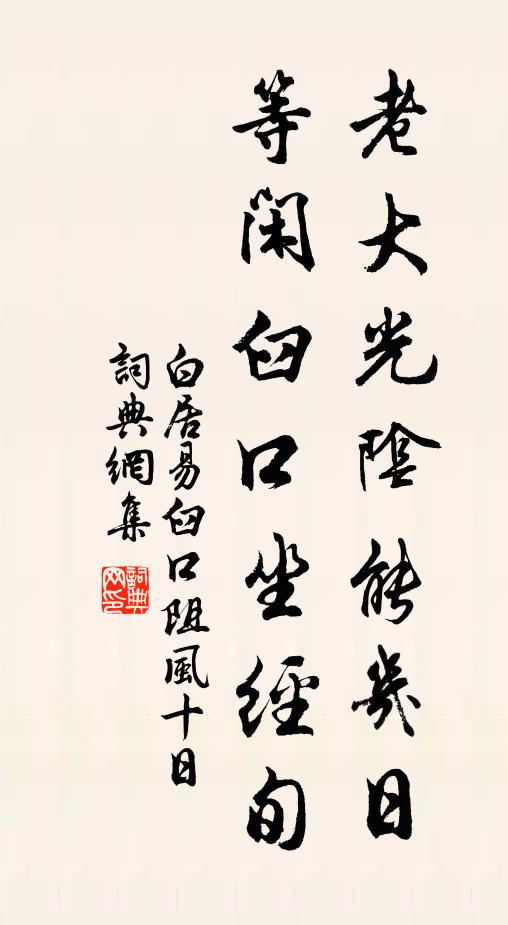 老大光陰能幾日
等閑臼口坐經旬
白居易臼口阻風十日
詞典網集
詞典
網印